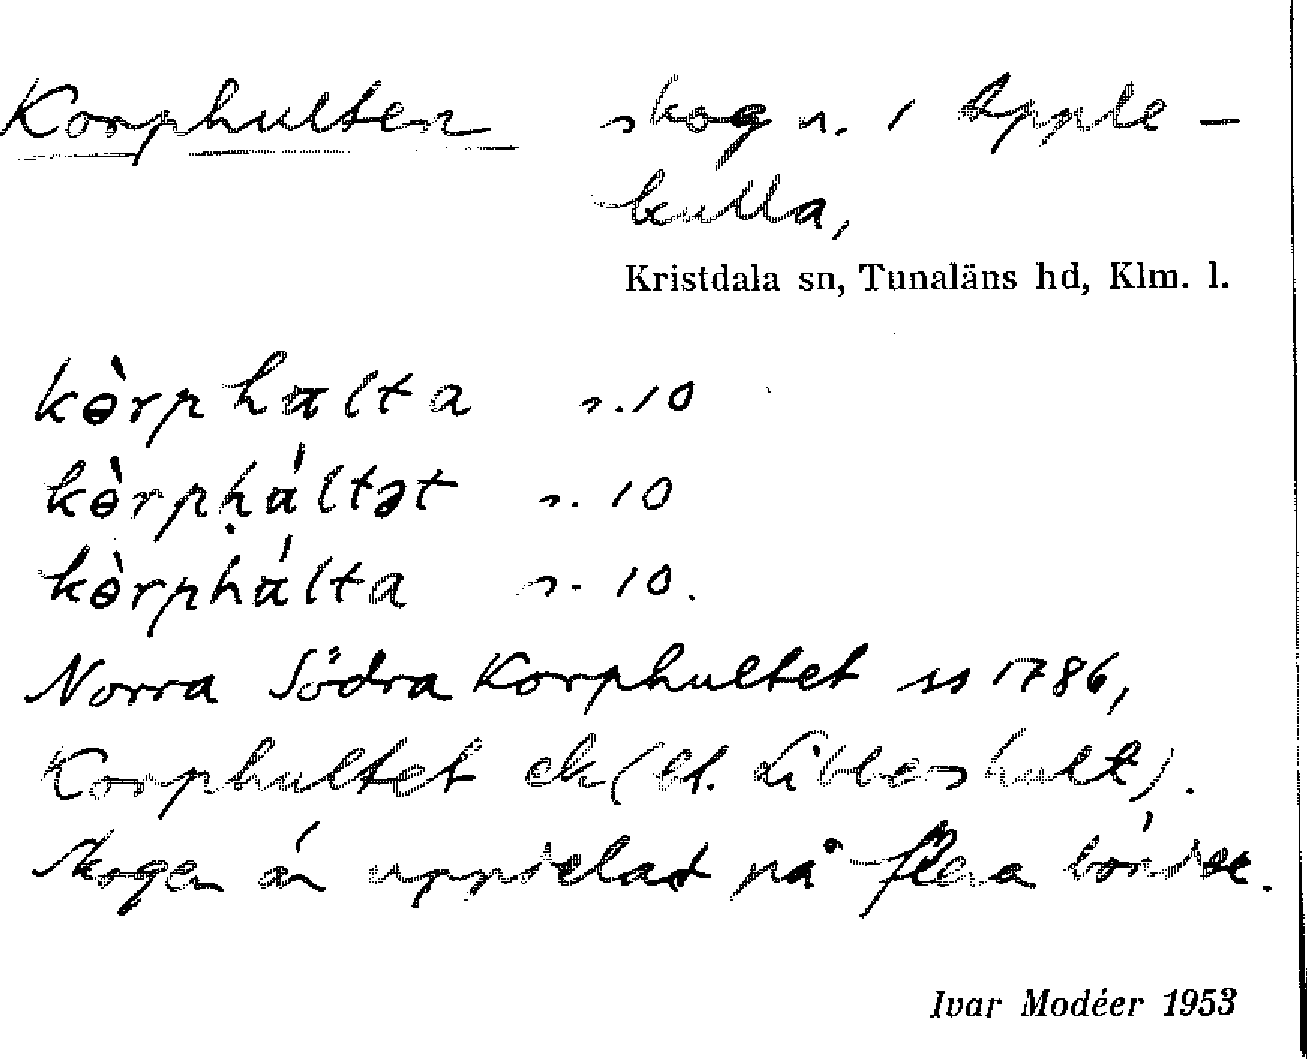 Korphulten skogsn. i Apple-
kulla,
Kristdala sn, Tunaläns hd, Klm. l.
kɵ̀rphalta s. 10
kɵ̀rpḥáltət s. 10
kɵ̀rphálta s. 10.
Norra Södra Korphultet ss 1786,
Korphultet ek (lt. Libbershult).
Skogen är uppdelad på flera bönder.
Ivar Modéer 1953